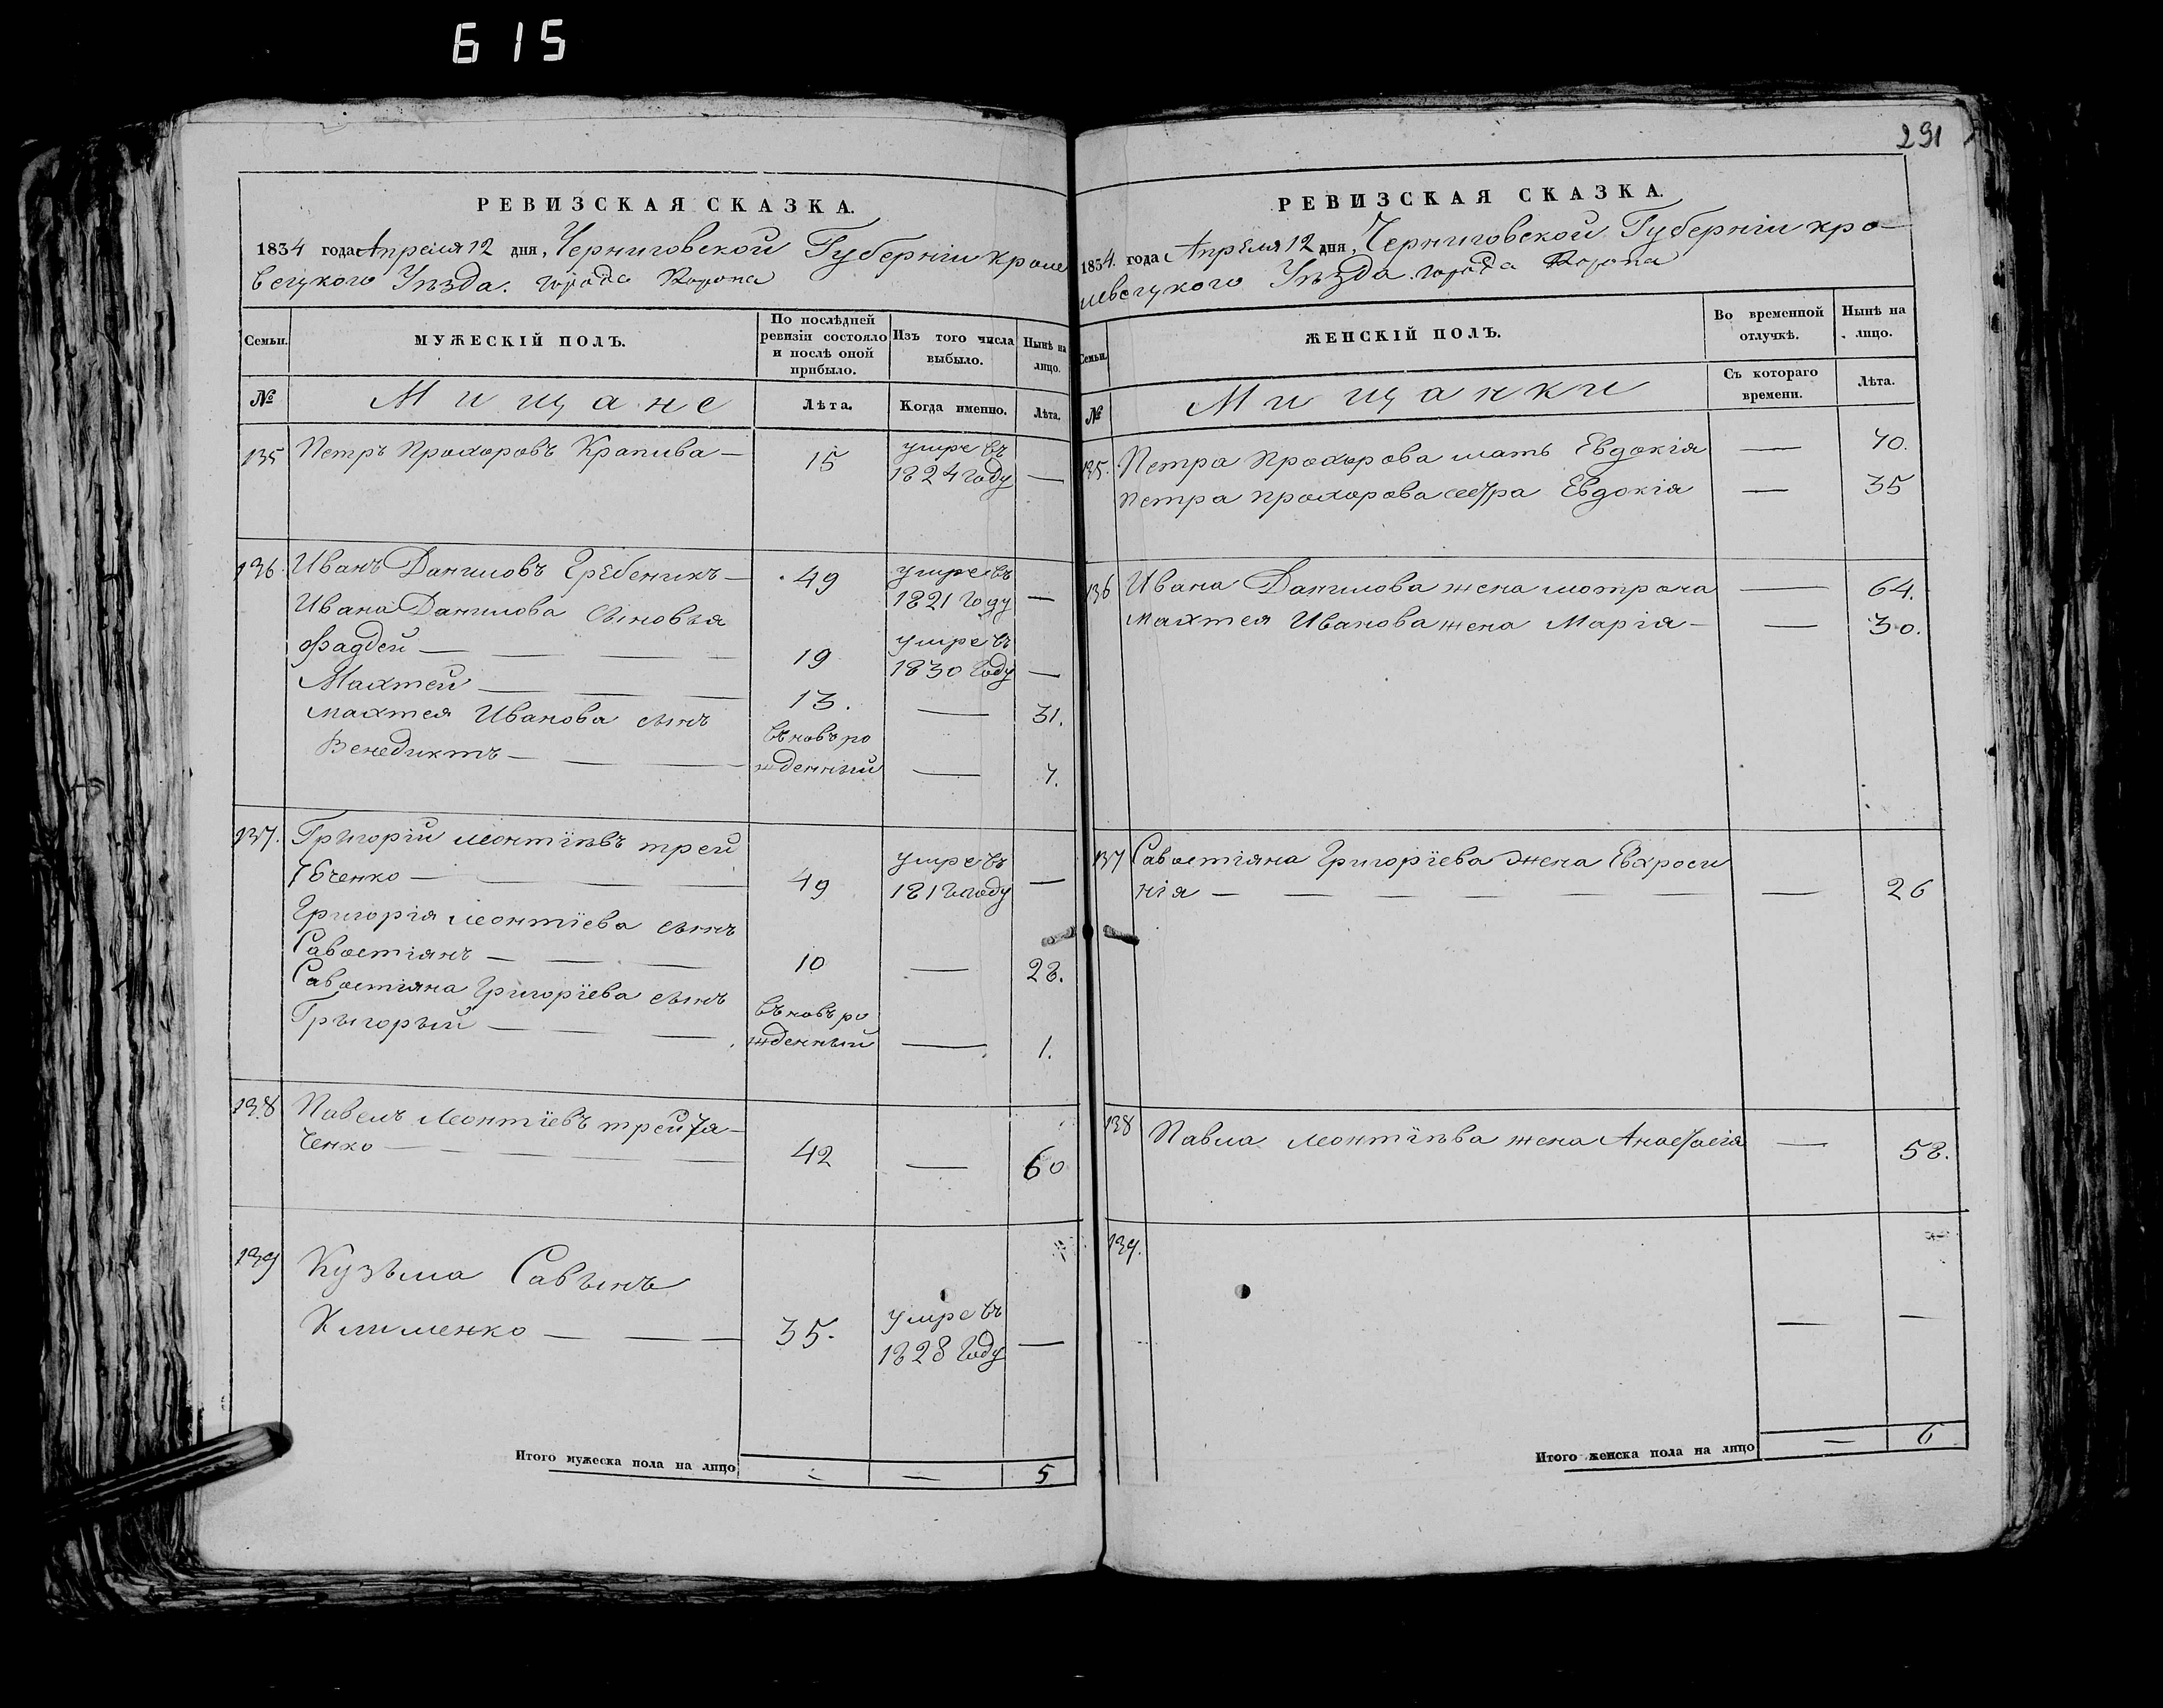 615
291
РЕВИЗСКАЯ СКАЗКА.
1834 года Апреля 12 дня, Черниговской Губерніи Кроле
вецкого Уѣзда. города Коропа
Семьи.
МУЖЕСКІЙ ПОЛЪ.
По послѣдней
ревизіи состояло
и послѣ оной
прибыло.
Изъ того числа
выбыло.
Нынѣ на
лицо.
№
Мищане
Лѣта.
Когда именно.
Лѣта.
135 Петръ Прохоровъ Крапива — 15 умре въ
1824 году —
136 Иванъ Даниловъ Гребеникъ — 49 умре въ
1821 году —
Ивана Данилова сыновья
Фаддей — 19 умре въ
1830 году —
Махтей — 13. — 31.
Махтея Иванова сынъ
Венедиктъ — вновь ро
жденный — 7.
137. Григорій Леонтіевъ трей
ченко — 49 умре въ
году —
Григорія Леонтіева сынъ
Савостіянъ — 10 — 28.
Савостіяна Григоріева сынъ
Григорый — вновь ро
жденный — 1.
138 Павелъ Леонтіевъ
ченко — 42 — 60
139 Кузьма Савынъ
Клименко — 35. умре въ
1828 году —
Итого мужеска пола на лицо — — 5
РЕВИЗСКАЯ СКАЗКА.
1834. года Апреля 12 дня, Черниговской Губерніи Кро-
левецкого Уѣзда. города Коропа
Семьи.
ЖЕНСКІЙ ПОЛЪ.
Во временной
отлучкѣ.
Нынѣ на
лицо.
№
Мищанки
Съ котораго
времени.
Лѣта.
135. Петра Прохорова мать Евдокія — 70.
Петра Прохорова сестра Евдокія — 35
136 Ивана Данилова жена Мотрона — 64.
Махтея Иванова жена Марія — — 30.
137 Савостіяна Григоріева жена Евхроси
нія — — 26
138 Павла Леонтіева жена Анастасія — 58.
139. — —
Итого женска пола на лицо — 6